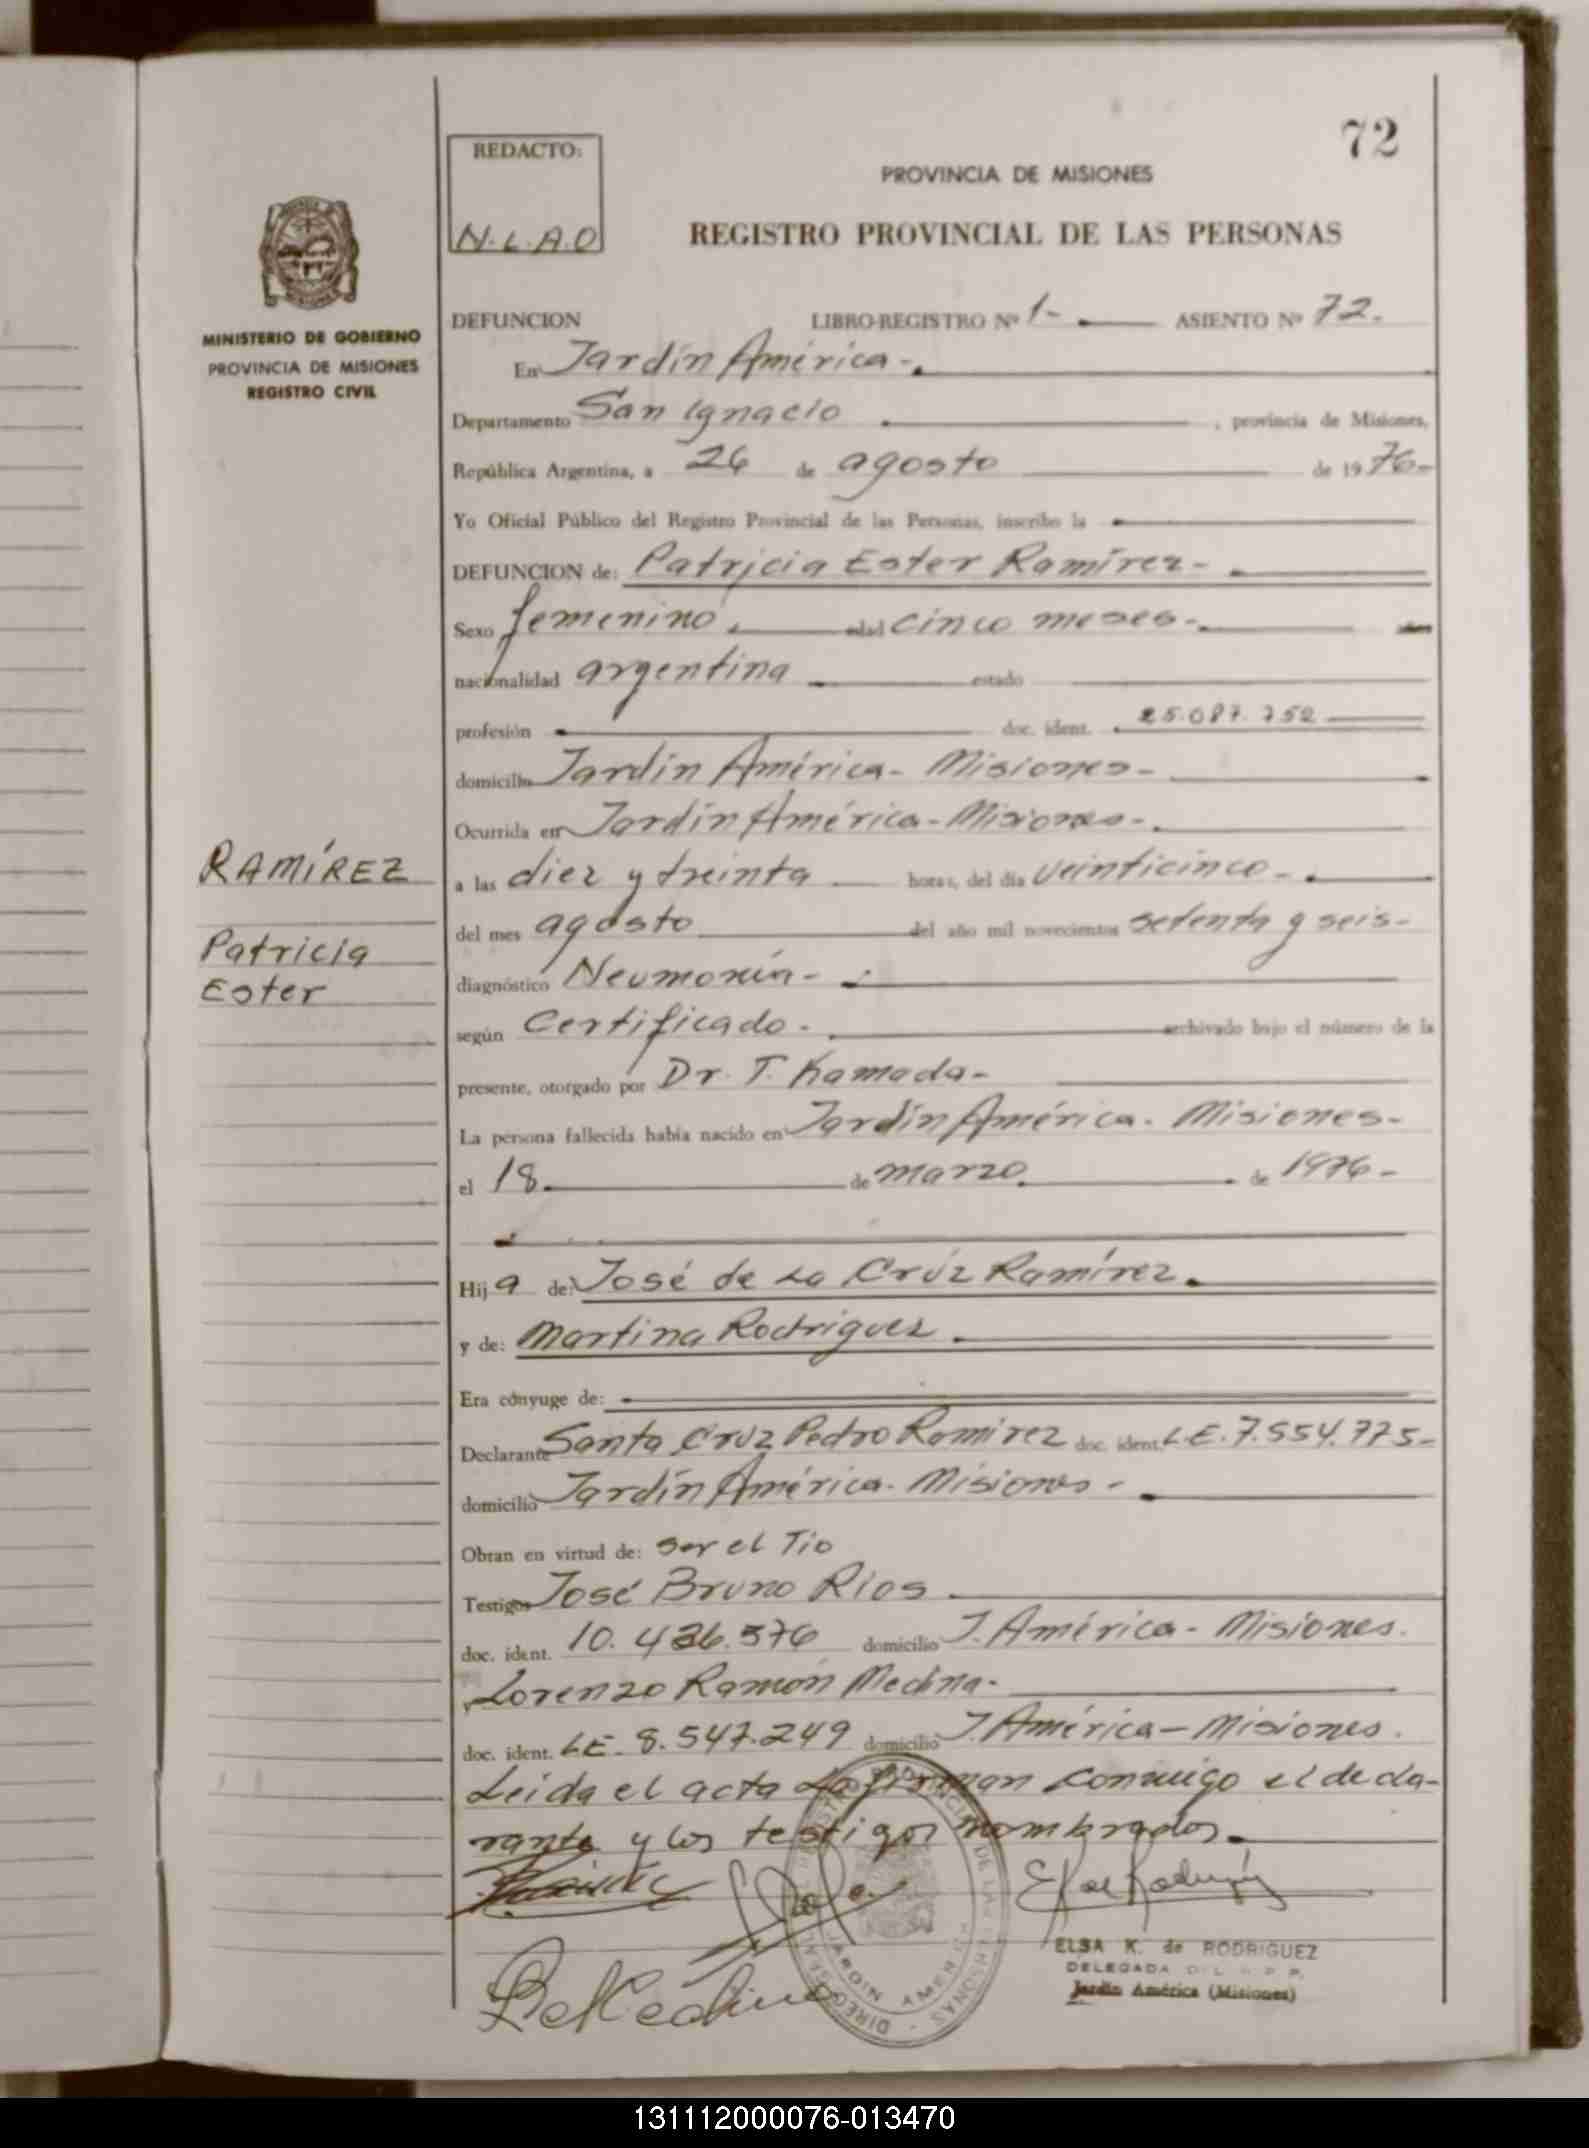 72
REDACTO:
N.L.A.O
PROVINCIA DE MISIONES
REGISTRO PROVINCIAL DE LAS PERSONAS
MINISTERIO DE GOBIERNO
PROVINCIA DE MISIONES
REGISTRO CIVIL
DEFUNCION LIBRO-REGISTRO Nº 1- ASIENTO Nº 72.
En Jardín América-.
Departamento San Ignacio , provincia de Misiones,
República Argentina, a 26 de agosto de 1976-
Yo Oficial Público del Registro Provincial de las Personas, inscribo la
DEFUNCION de: Patricia Ester Ramírez-
Sexo femenino. edad cinco meses-.
nacionalidad argentina estado
profesión doc. ident. 25.087.752
domicilio Jardín América- Misiones-
Ocurrida en Jardín América- Misiones-.
RAMÍREZ
Patricia
Ester
a las diez y treinta horas, del día veinticinco-.
del mes agosto del año mil novecientos setenta y seis-
diagnóstico Neumonía-
según Certificado. archivado bajo el número de la
presente, otorgado por Dr. T. Kamada-
La persona fallecida había nacido en Jardín América. Misiones-
el 18 de marzo. de 1976-
Hija de: José de La Crúz Ramírez.
y de: Martina Rodriguez
Era cónyuge de:
Declarante Santa Cruz Pedro Ramírez doc. ident. L.E. 7.554.775-
domicilio Jardín América- Misiones-
Obran en virtud de: ser el Tio
Testigos José Bruno Rios
doc. ident. 10.426.576 domicilio J. América- Misiones.
y Lorenzo Ramón Medina-
doc. ident. L.E. 8.547.249 domicilio J. América- Misiones.
Leida el acta la firman conmigo el decla-
rante y los testigos nombrados.
ELSA K. de RODRIGUEZ
DELEGADA
Jardín América (Misiones)
131112000076-013470